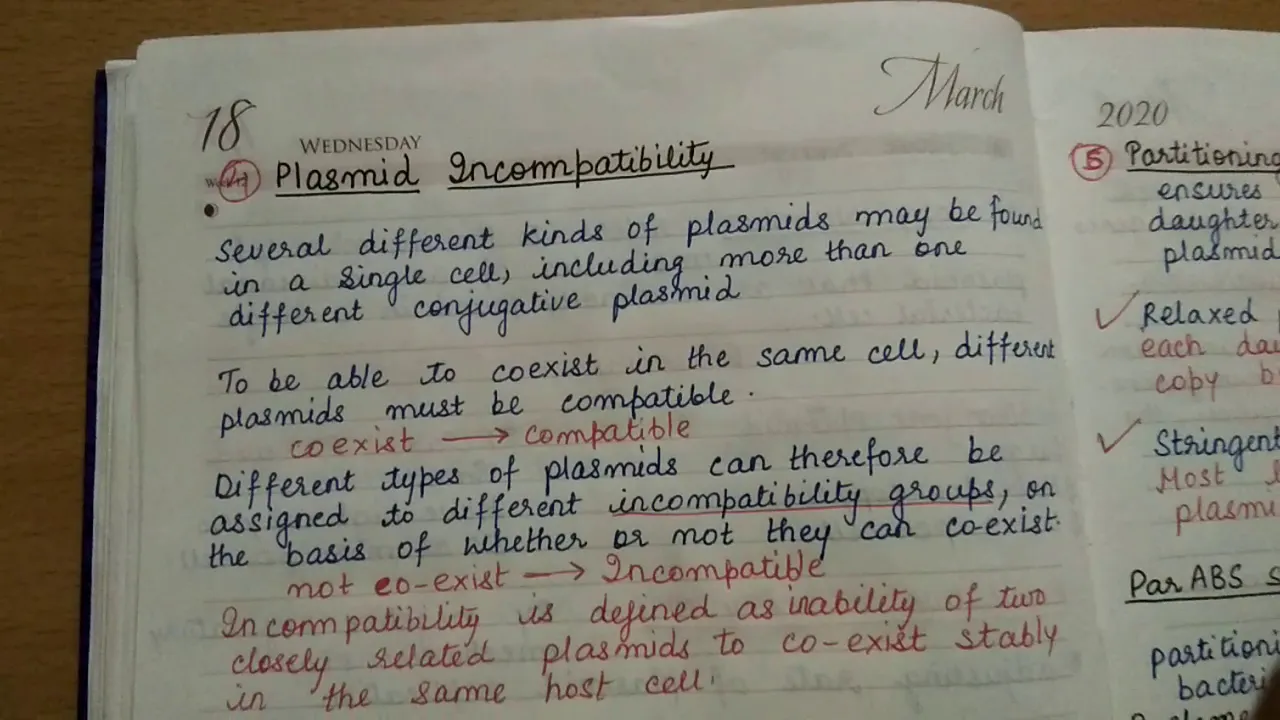 18 WEDNESDAY March
④ Plasmid Incompatibility
Several different kinds of plasmids may be found
in a single cell, including more than one
different conjugative plasmid
To be able to coexist in the same cell, different
plasmids must be compatible.
coexist → compatible
Different types of plasmids can therefore be
assigned to different incompatibility groups, on
the basis of whether or not they can co-exist.
not co-exist → Incompatible
Incompatibility is defined as inability of two
closely related plasmids to co-exist stably
in the same host cell.
2020
⑤ Partitioning
ensures
daughter
plasmid
✓ Relaxed
each
copy
✓ Stringent
Most
ParABS